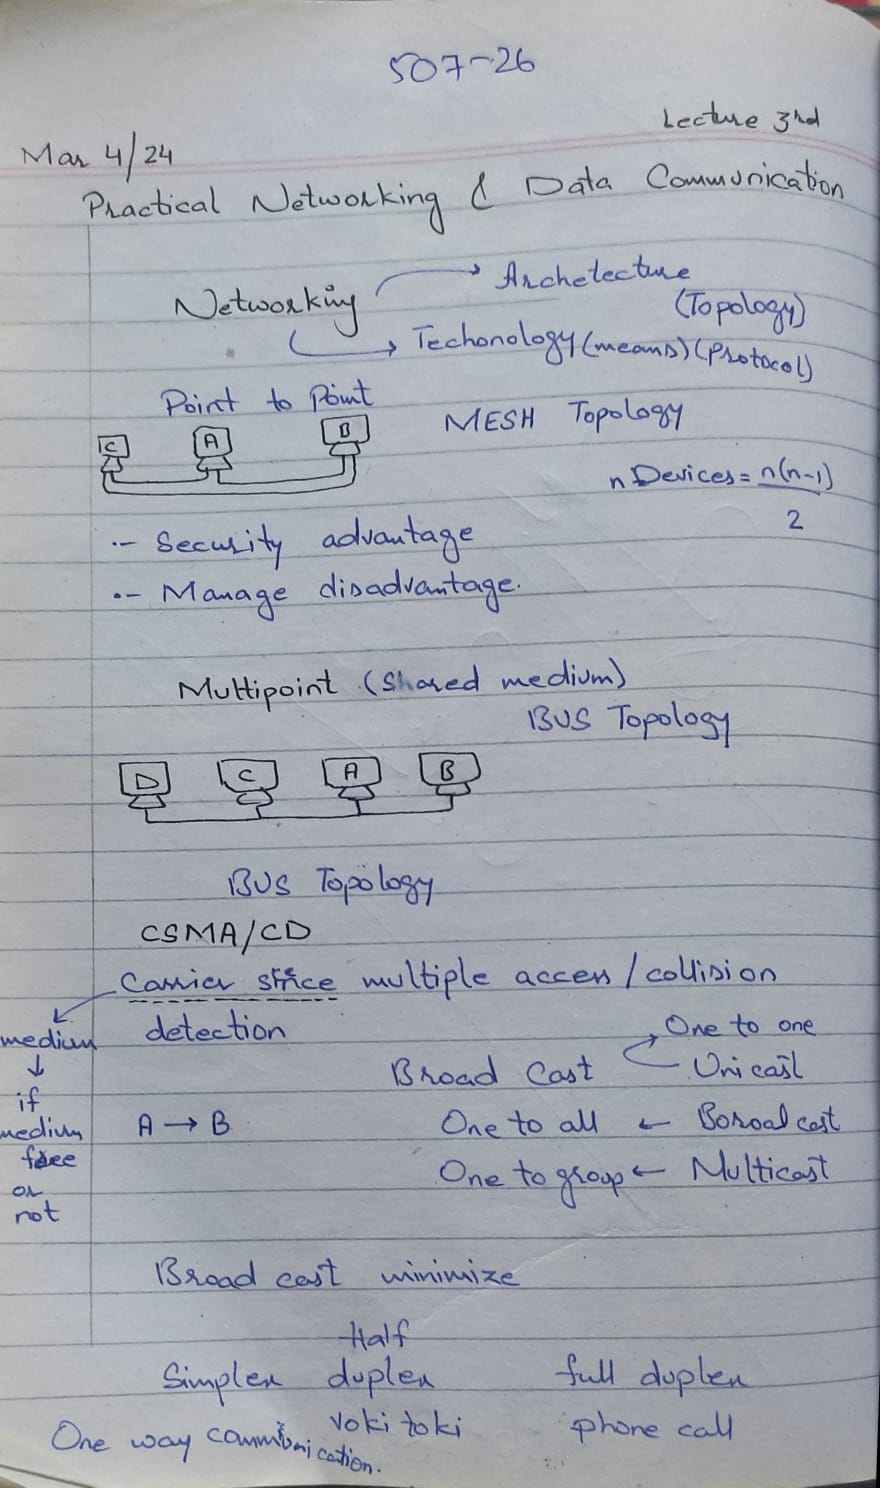 507-26
Lecture 3rd
Mar 4/24
Practical Networking & Data Communication
Networking → Archetecture
(Topology)
→ Techonology (means) (Protocol)
Point to Point
MESH Topology
C A B
n Devices = n(n-1)
2
.- Security advantage
.- Manage disadvantage.
Multipoint (Shared medium)
BUS Topology
D C A B
BUS Topology
CSMA/CD
Carrier multiple access / collision
detection
medium
↓
if
medium
free
or
not
One to one
Broad Cast Unicast
A → B
One to all ← Boroadcast
One to group ← Multicast
Broad cast minimize
Half
Simplex duplex full duplex
voki toki phone call
One way communication.